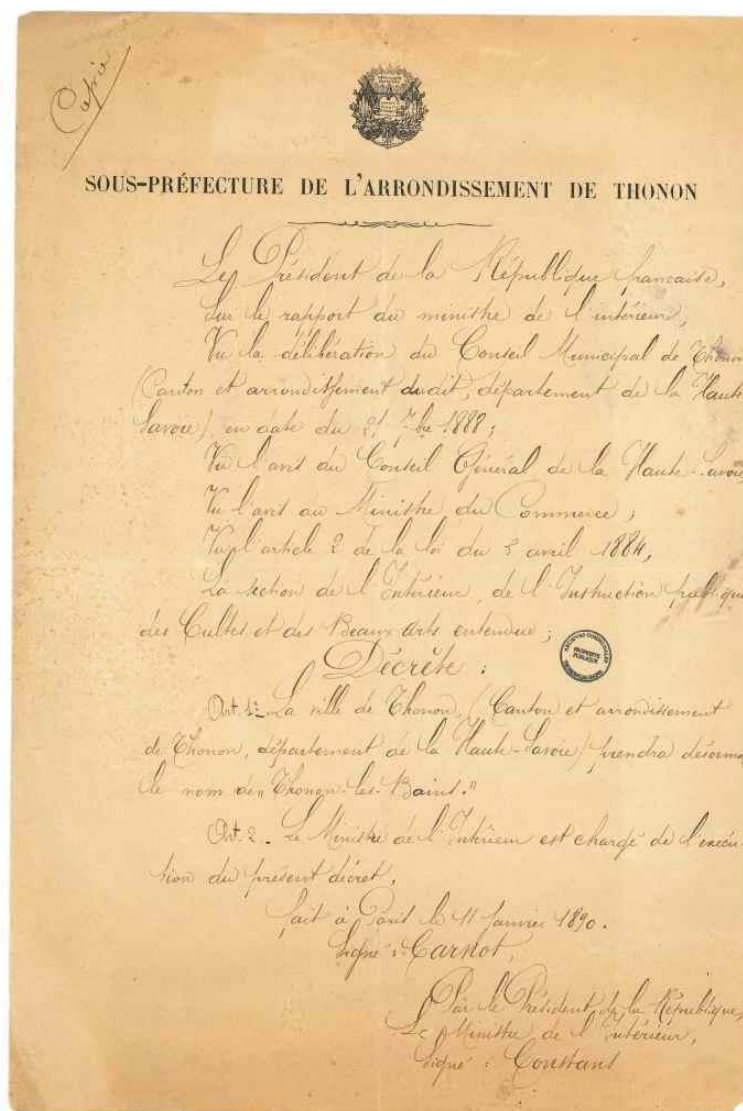 Copie
SOUS-PRÉFECTURE DE L'ARRONDISSEMENT DE THONON
Le Président de la République française,
Sur le rapport du ministre de l'intérieur,
Vu la délibération du Conseil Municipal de Thonon
(Canton et arrondissement dudit, département de la Haute
Savoie), en date du 21 7bre 1888;
Vu l'avis du Conseil Général de la Haute-Savoie
Vu l'avis du Ministre du Commerce;
Vu l'article 2 de la loi du 5 avril 1884,
La section de l'Intérieur, de l'Instruction publique
des Cultes et des Beaux-Arts entendue;
Décrète:
ARCHIVES COMMUNALES
PROPRIÉTÉ
PUBLIQUE
Art. 1er La ville de Thonon, (Canton et arrondissement
de Thonon, département de la Haute-Savoie) prendra désorma
le nom de "Thonon-les-Bains."
Art. 2. Le Ministre de l'Intérieur est chargé de l'exécu-
tion du présent décret.
fait à Paris le 11 Janvier 1890.
Signé: Carnot,
Par le Président de la République,
Le Ministre de l'intérieur,
Signé: Constant